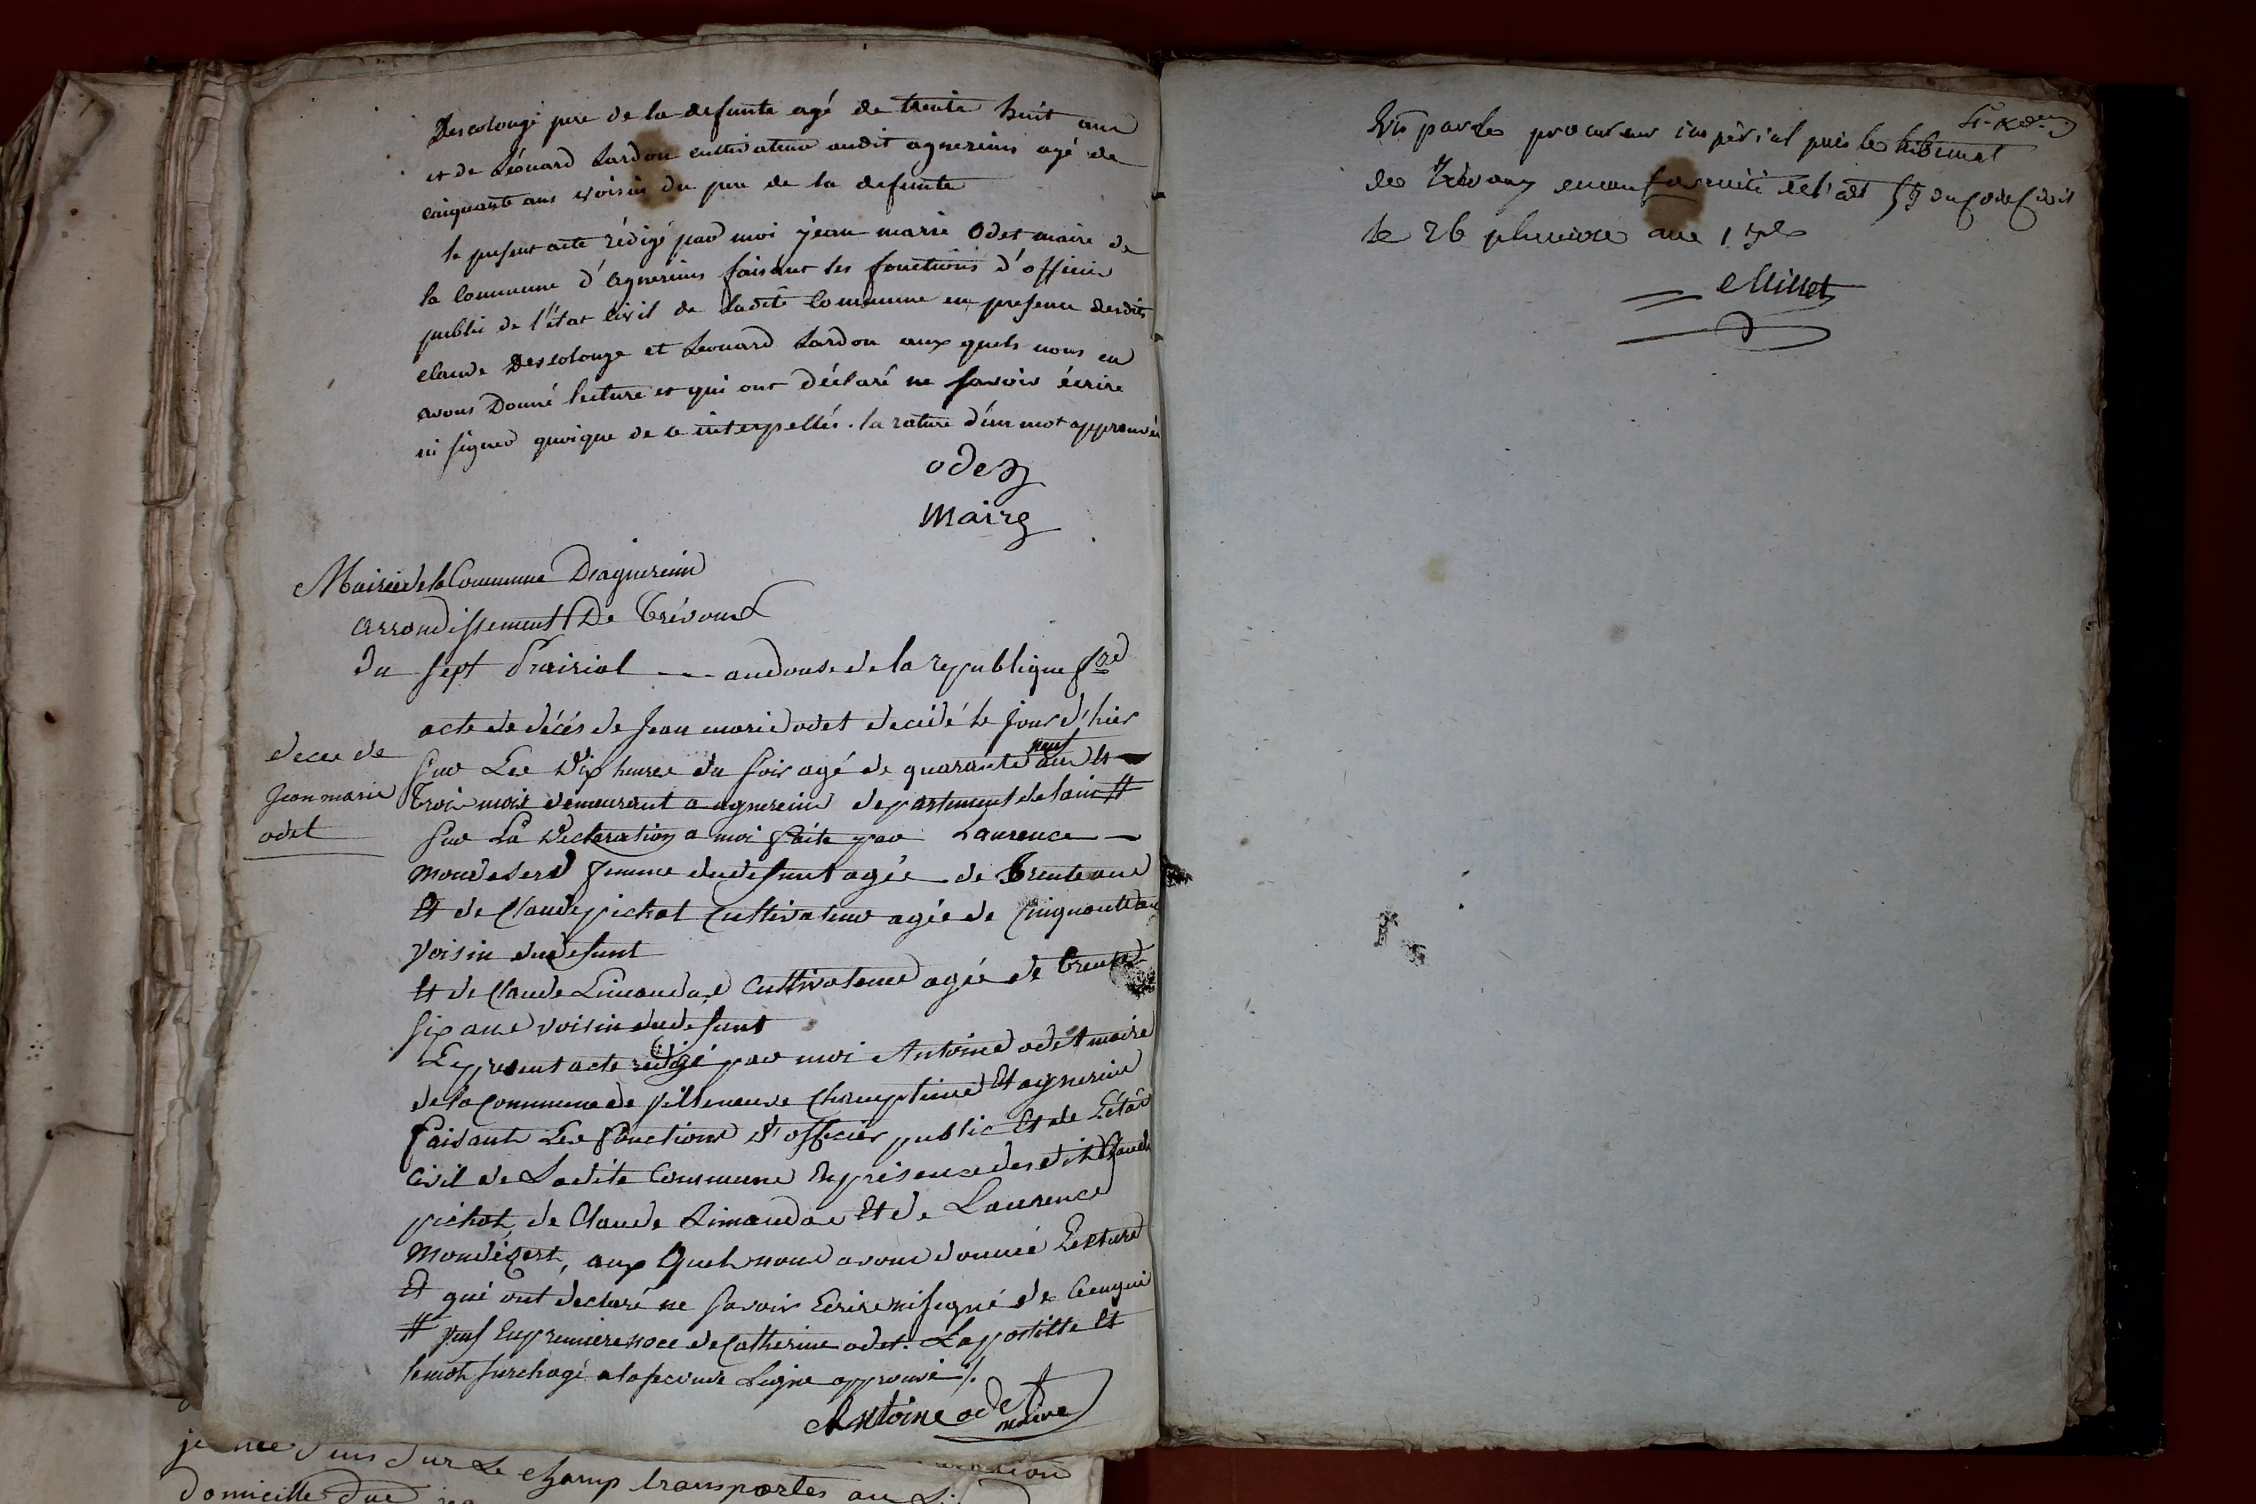 Descolonge pere de la defunte agé de trente huit ans
et de Léonard Lardon cultivateur audit agnereins agé de
cinquante ans voisin du pere de la defunte
le present acte rédigé par moi jean marie Odet maire de
la commune d'agnereins faisant les fonctions d'officier
public de l'état civil de ladite commune en presence desdits
claude Descolonge et Leonard Lardon aux quels nous en
avons Donné lecture et qui ont déclaré ne savoir écrire
ni signer quoique de ce interpellés. la rature d'un mot approuvée
odet
Maire
Mairie de la Commune Dagnereins
arrondissement De Trévoux
du sept Prairial --- an douse de la republique fre
acte de décés de Jean marie odet decidé le jour d'hier
sur Les dix heures du soir agé de quarante neuf ans et
trois mois demeurant a agnereins departement de lain #
sur La declaration a moi faite par Laurence
mondesert femme du defunt agée de Trente ans
Et de Claude pichat Cultivateur agée de Cinquante ans
voisin du defunt
et de Claude Limandas Cultivateur agée de trente
six ans voisin du defunt
Le present acte redigé par moi Antoine odet maire
de la Commune de Villeneuve Champteins Et agnereins
faisant Les fonctions d'officier public Et de L'état
Civil de Ladite Commune En présence desdits Claude
pichat, de Claude Limandas Et de Laurence
Mondézert, aux Quels nous avons donnée Lecture
Et qui ont declaré ne savoir Ecrire ni signé de Ce enquis
# veuf En premiere noce de Catherine odet. Lapostille Et
le mot surchagé a la seconde Ligne approuvé ./.
Antoine odet
maire
decee de
Jean marie
odet
Vû par le procureur impérial près le tribunal
de Trévoux en conformité de l'art 53 du Code Civil
le 26 pluviose an 13
Millet
je me suis sur Le champ transportés au
domicille du